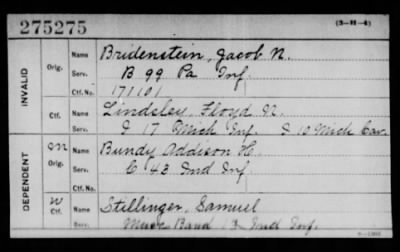 275275
(3-H-4)
INVALID
Orig.
Name Bridenstein, Jacob N.
Serv. B 99 Pa Inf.
Ctf. No. 171101
Ctf.
Name Lindsley, Floyd N.
Serv. I 17 Mich Inf. I 10 Mich Cav.
Ctf. No.
DEPENDENT
M
Orig.
Name Bundy Addison H.
Serv. C 43 Ind Inf
Ctf. No.
W
Ctf.
Name Stillinger, Samuel
Serv. Music Band Ind Inf.